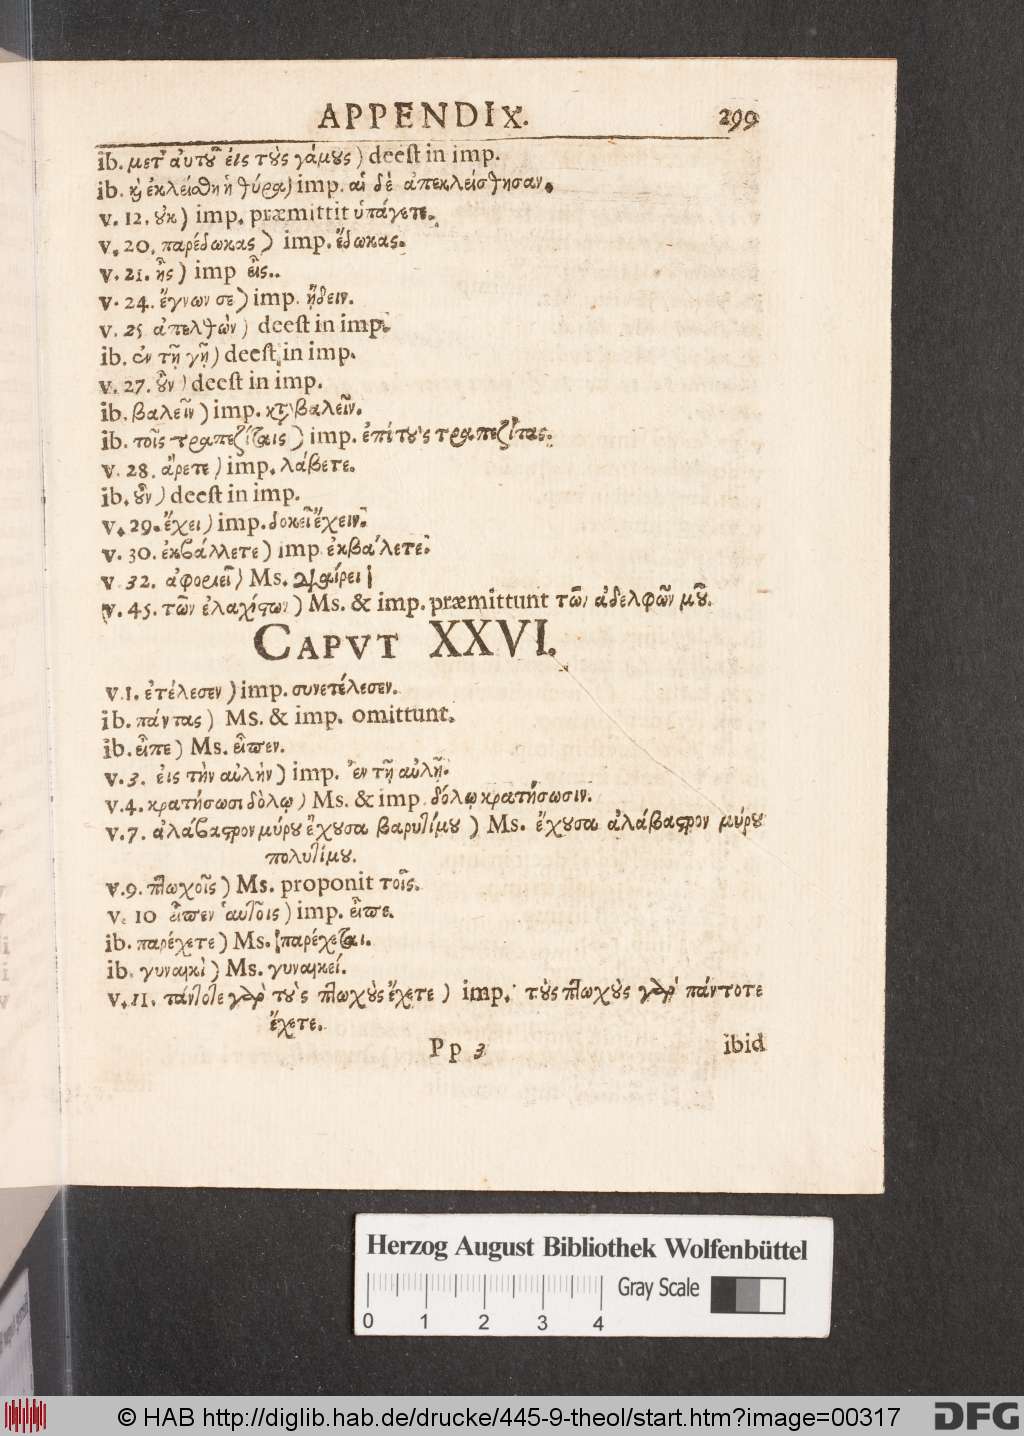 APPENDIX. 299
ib. μετ' αὐτοῦ εἰς τοὺς γάμους) deest in imp.
ib. καὶ ἐκλείσθη ἡ θύρα) imp. αἱ δὲ ἀπεκλείσθησαν.
v. 12. οὐκ) imp. præmittit ὑπάγετε.
v. 20. παρέδωκας) imp. ἔδωκας.
v. 21. ἦς) imp εἶς..
v. 24. ἔγνων σε) imp. ᾔδειν.
v. 25 ἀπελθὼν) deest in imp.
ib. ἐν τῇ γῇ) deest in imp.
v. 27. οὖν) deest in imp.
ib. βαλεῖν) imp. καταβαλεῖν.
ib. τοῖς τραπεζίταις) imp. ἐπὶ τοὺς τραπεζίτας.
v. 28. ἄρετε) imp. λάβετε.
ib. οὖν) deest in imp.
v. 29. ἔχει) imp. δοκεῖ ἔχειν.
v. 30. ἐκβάλλετε) imp ἐκβάλετε.
v. 32. ἀφοριεῖ) Ms. διαίρει
v. 45. τῶν ἐλαχίστων) Ms. & imp. præmittunt τῶν ἀδελφῶν μοῦ.
CAPVT XXVI.
v. 1. ἐτέλεσεν) imp. συνετέλεσεν.
ib. πάντας) Ms. & imp. omittunt.
ib. εἶπε) Ms. εἶπεν.
v. 3. εἰς τὴν αὐλὴν) imp. ἐν τῇ αὐλῇ.
v. 4. κρατήσωσι δόλῳ) Ms. & imp δόλῳ κρατήσωσιν.
v. 7. ἀλάβαστρον μύρου ἔχουσα βαρυτίμου) Ms. ἔχουσα ἀλάβαστρον μύρου
πολυτίμου.
v. 9. πτωχοῖς) Ms. proponit τοῖς.
v. 10 εἶπεν αὐτοῖς) imp. εἶπε.
ib. παρέχετε) Ms. παρέχεται.
ib. γυναικὶ) Ms. γυναικεί.
v. 11. πάντοτε γὰρ τοὺς πτωχοὺς ἔχετε) imp. τοὺς πτωχοὺς γὰρ πάντοτε
ἔχετε.
Pp 3 ibid
Herzog August Bibliothek Wolfenbüttel
Gray Scale
0 1 2 3 4
© HAB http://diglib.hab.de/drucke/445-9-theol/start.htm?image=00317
DFG